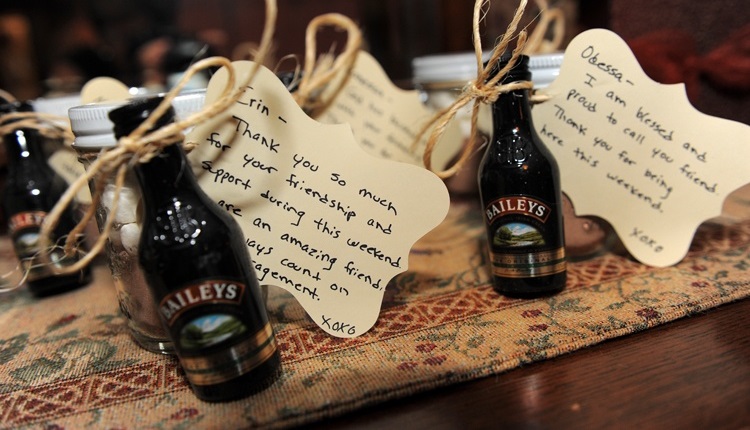 Erin -
Thank you so much
for your friendship and
support during this weekend
are an amazing friend.
count on
XOXO
Odessa -
I am blessed and
proud to call you friend
Thank you for being
here this weekend.
XOXO
BAILEYS
BAILEYS
BAILEYS